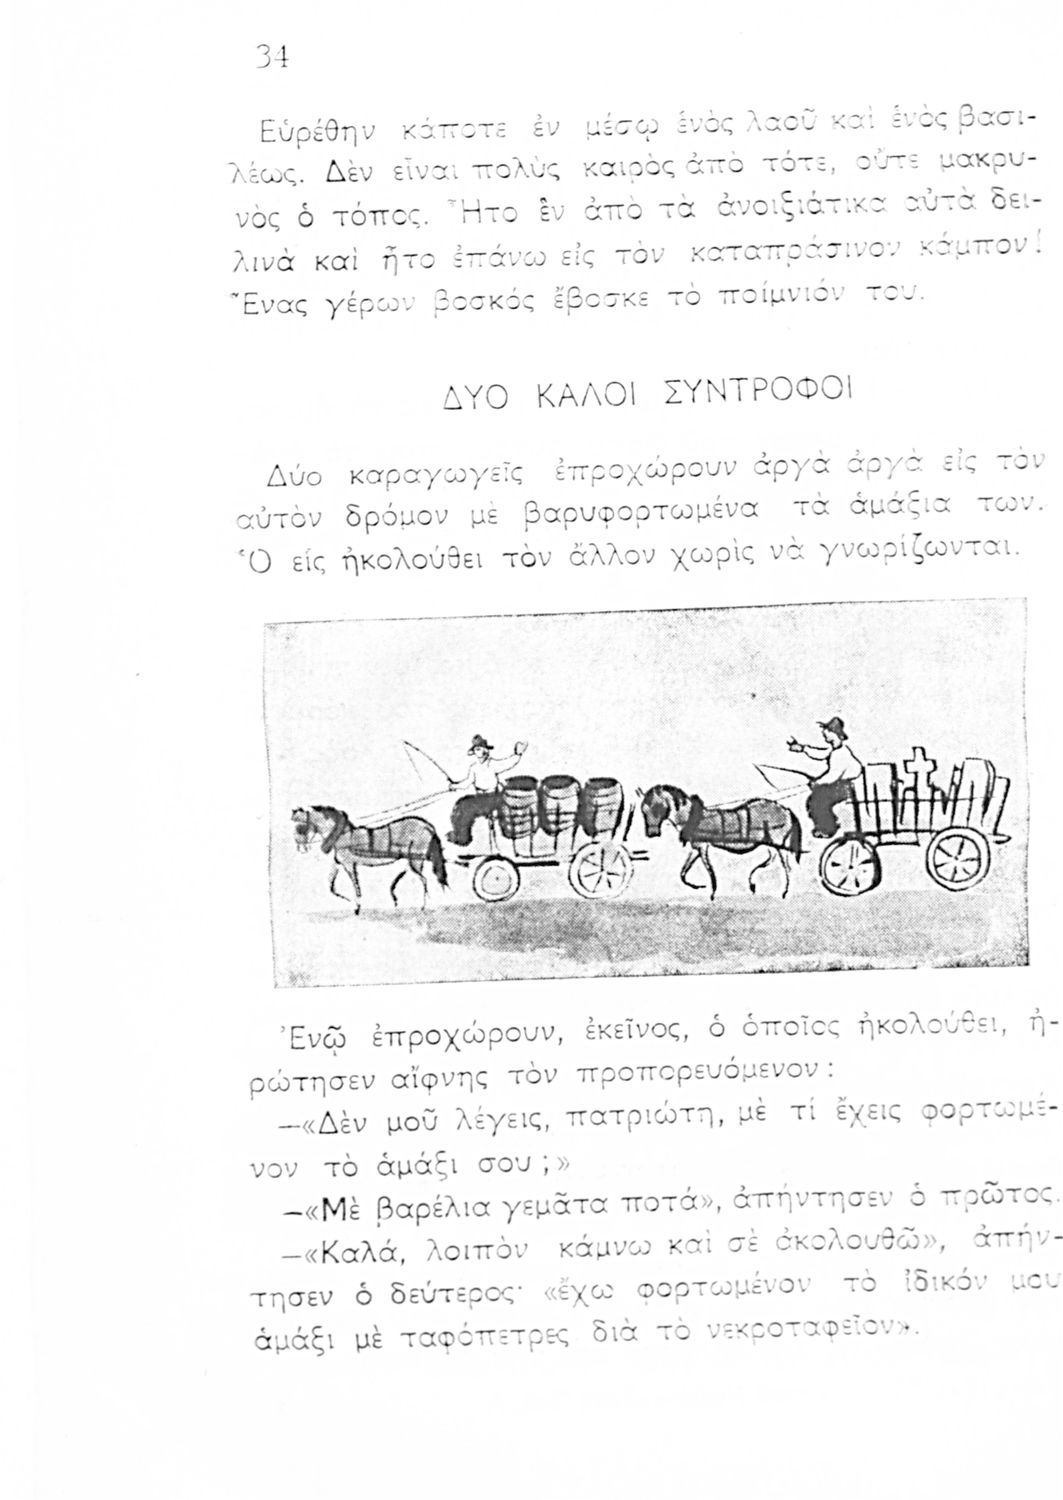 34
Εὑρέθην κάποτε ἐν μέσῳ ἑνὸς λαοῦ καὶ ἑνὸς βασι-
λέως. Δὲν εἶναι πολὺς καιρὸς ἀπὸ τότε, οὔτε μακρυ-
νὸς ὁ τόπος. Ἦτο ἓν ἀπὸ τὰ ἀνοιξιάτικα αὐτὰ δει-
λινὰ καὶ ἦτο ἐπάνω εἰς τὸν καταπράσινον κάμπον!
Ἕνας γέρων βοσκός ἔβοσκε τὸ ποίμνιόν του.
ΔΥΟ ΚΑΛΟΙ ΣΥΝΤΡΟΦΟΙ
Δύο καραγωγεῖς ἐπροχώρουν ἀργὰ ἀργὰ εἰς τὸν
αὐτὸν δρόμον μὲ βαρυφορτωμένα τὰ ἁμάξια των.
Ὁ εἷς ἠκολούθει τὸν ἄλλον χωρὶς νὰ γνωρίζωνται.
Ἐνῷ ἐπροχώρουν, ἐκεῖνος, ὁ ὁποῖος ἠκολούθει, ἠ-
ρώτησεν αἴφνης τὸν προπορευόμενον:
—«Δὲν μοῦ λέγεις, πατριώτη, μὲ τί ἔχεις φορτωμέ-
νον τὸ ἁμάξι σου;»
—«Μὲ βαρέλια γεμᾶτα ποτά», ἀπήντησεν ὁ πρῶτος.
—«Καλά, λοιπὸν κάμνω καὶ σὲ ἀκολουθῶ», ἀπήν-
τησεν ὁ δεύτερος· «ἔχω φορτωμένον τὸ ἰδικόν μου
ἁμάξι μὲ ταφόπετρες διὰ τὸ νεκροταφεῖον».